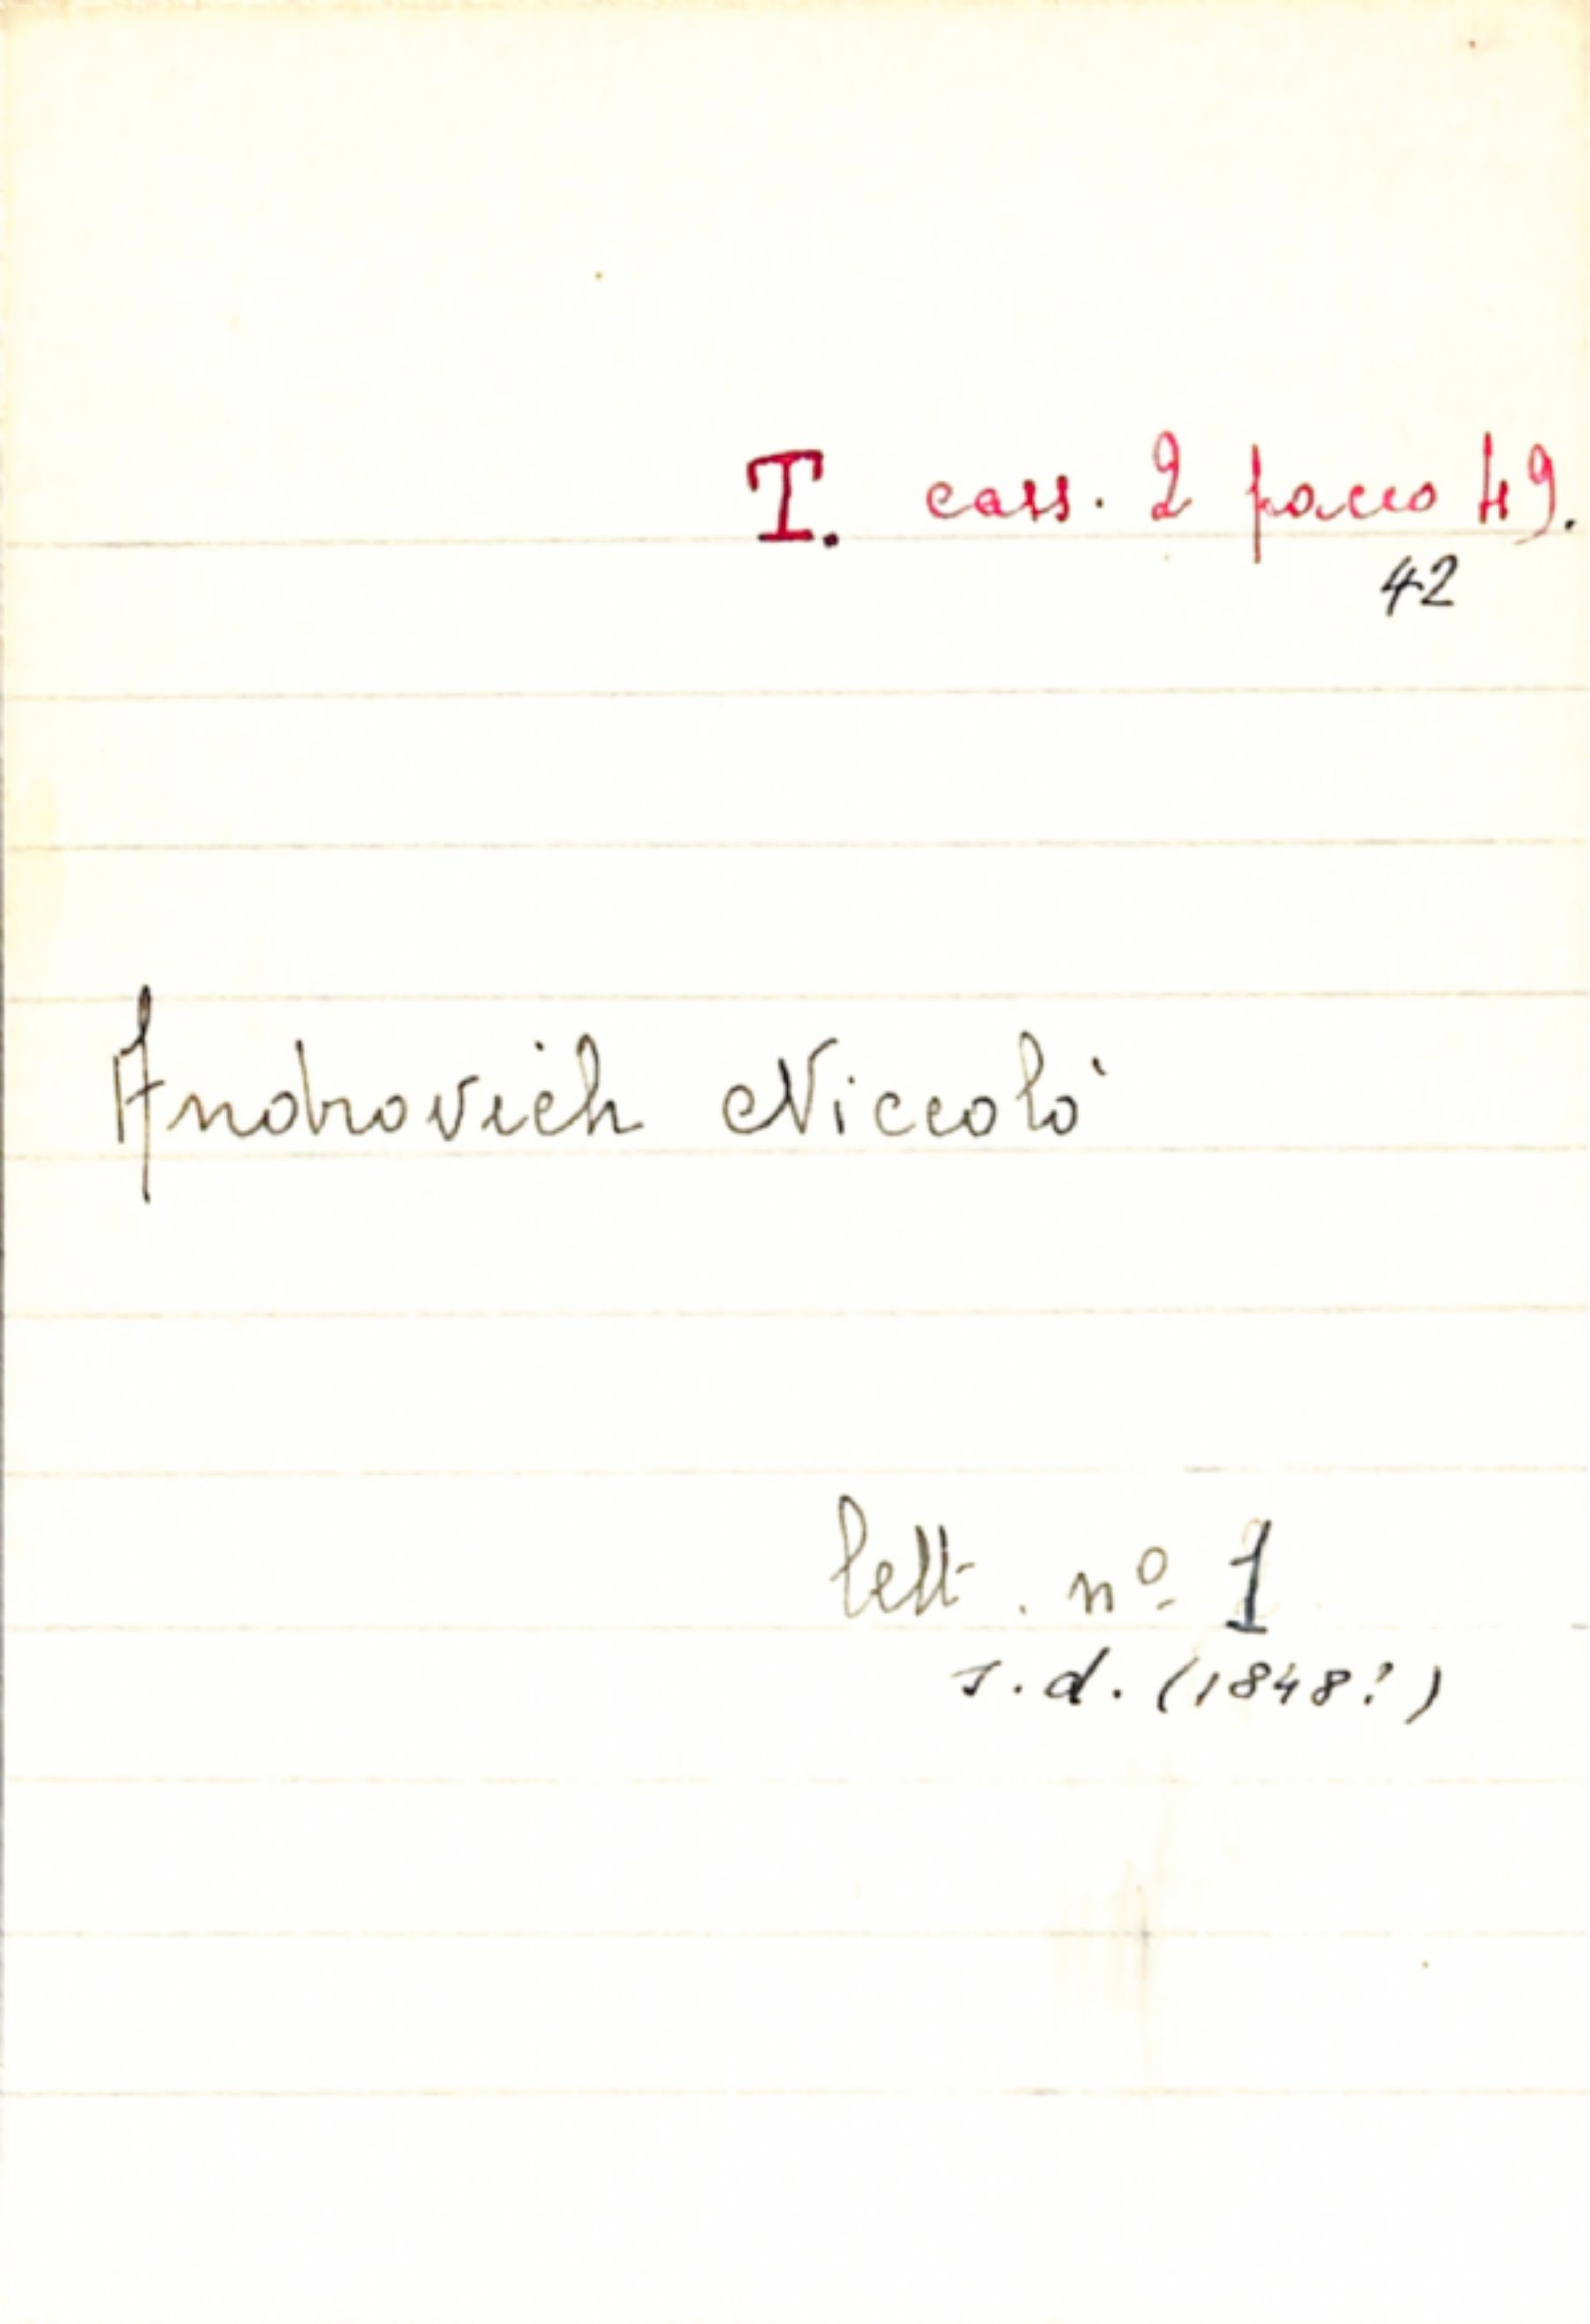 T. cass. 2 pacco 49.
42
Androvich Niccolò
lett. nº 1
s.d. (1848?)